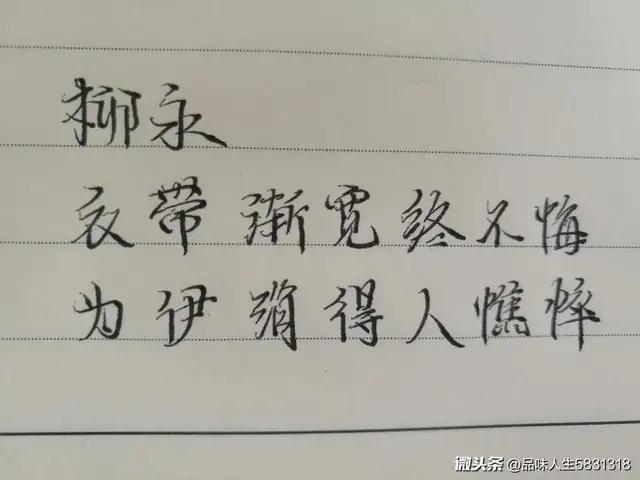 柳永
衣带渐宽终不悔
为伊消得人憔悴
微头条 @品味人生5831318